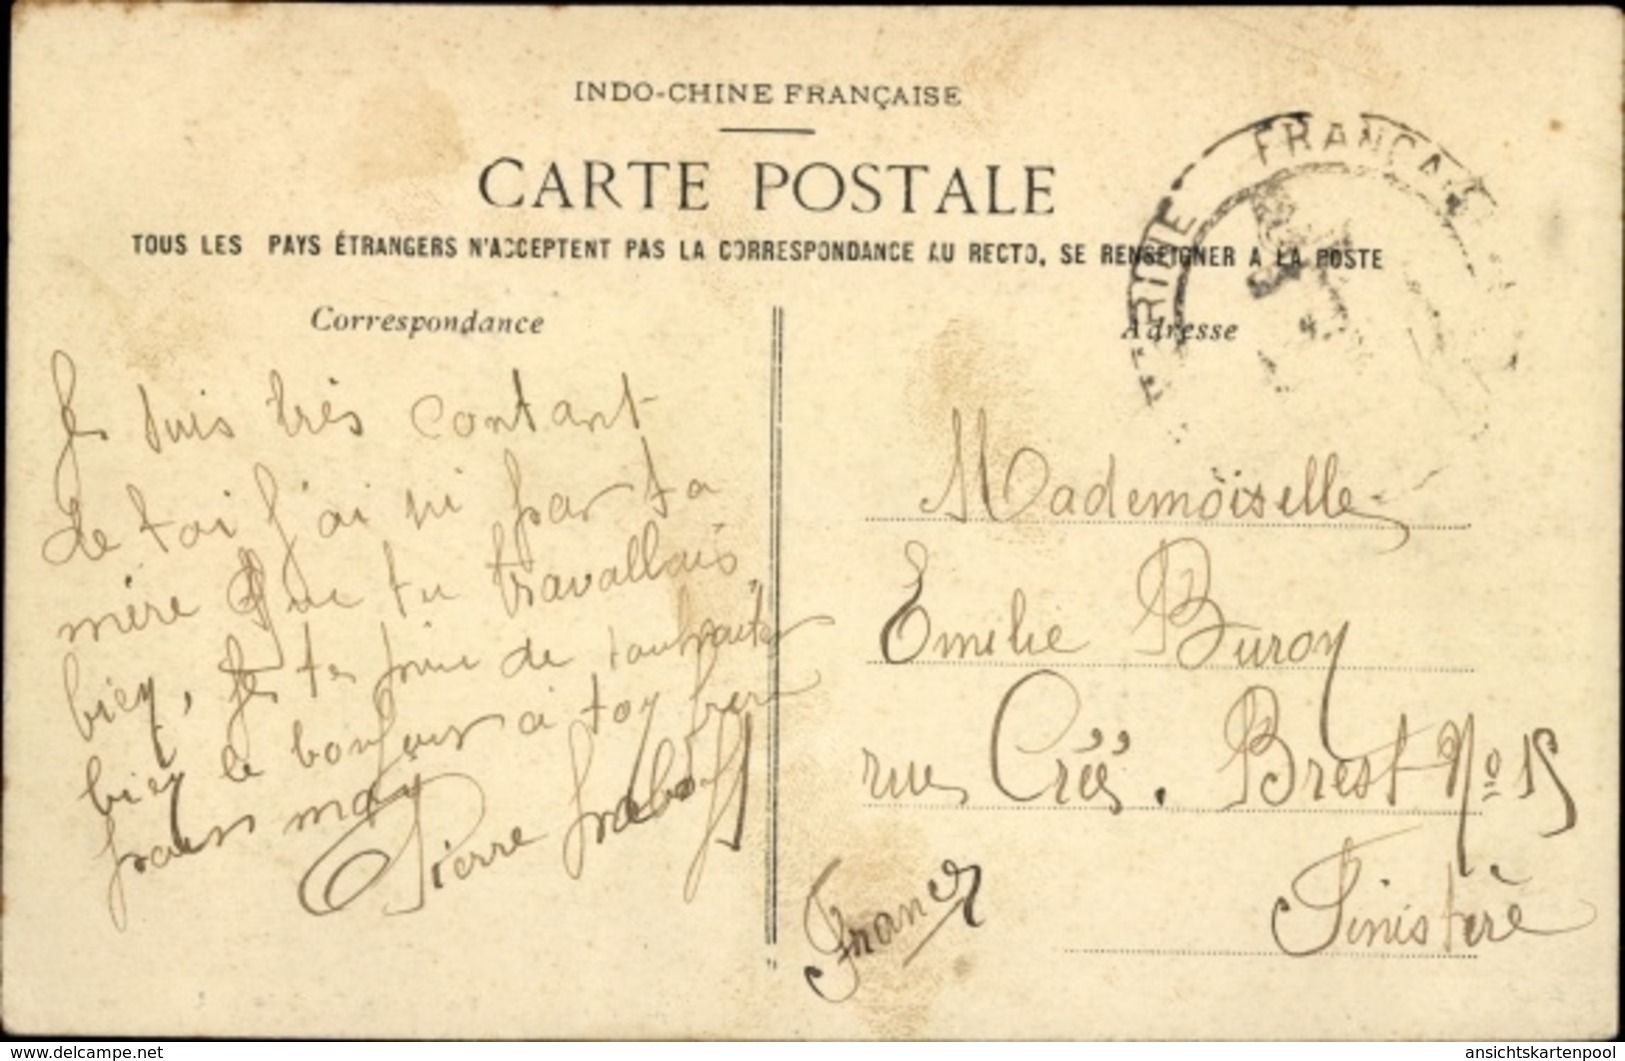 INDO-CHINE FRANÇAISE
CARTE POSTALE
TOUS LES PAYS ÉTRANGERS N'ACCEPTENT PAS LA CORRESPONDANCE AU RECTO, SE RENSEIGNER A LA POSTE
FRANÇAIS
Correspondance
Je suis très contant
de toi j'ai vi par ta
mère que tu travallais
bien, Je te prie de
bien le bonjour à ton frere
pour moi
Pierre
Adresse
Mademoiselle
Emelie Buron
rue Créé. Brest No 15
Finistère
France
delcampe.net
ansichtskartenpool